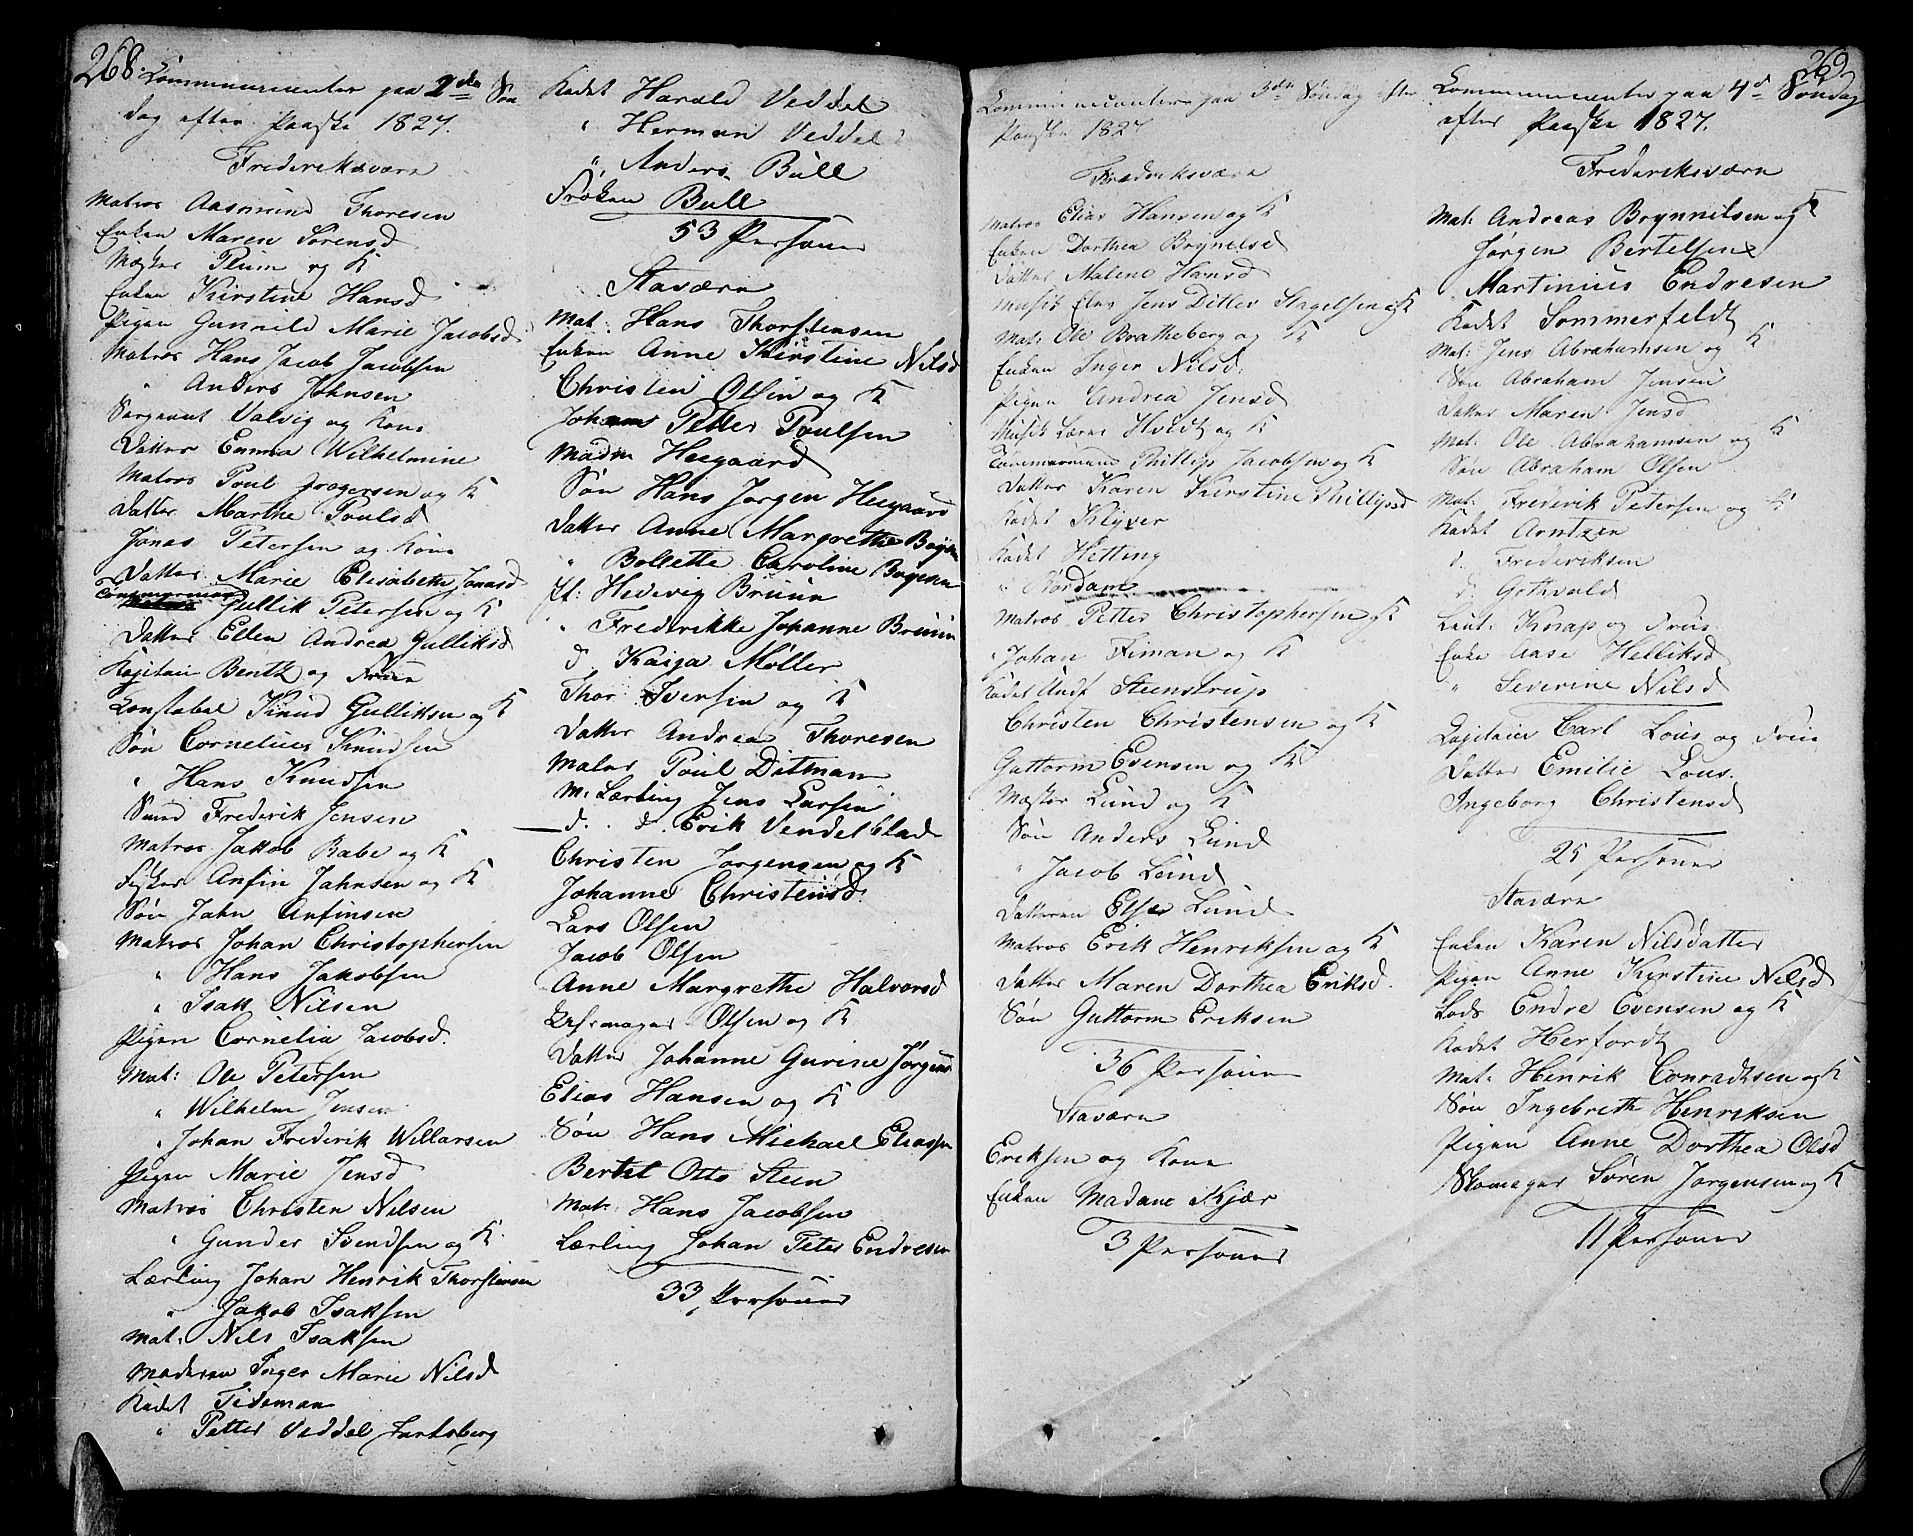 268.
Communicenter paa 2den Søn
dag efter Paaske 1827.
Frederiksværn
Matros Aasmund Thoresen
Enken Maren Sørensd
Mægler Plum og K
Enken Kirstine Hansd
Pigen Gunnild Marie Jacobsd
Matros Hans Jacob Jacobsen
" Anders Johnsen
Sergeant Valvig og Kone
Datter Emma Wilhelmine
Matros Poul Jrogersen og K
Datter Marthe Poulsd
Jonas Petersen og Kone
Datter Marie Elisabeth Jonasd
Tømmermand Gullik Petersen og K
Datter Ellen Andrea Gulliksd
Capitain Bentz og Frue
Constabel Knud Gulliksen og K
Søn Cornelius Knudsen
" Hans Knudsen
Svend Frederik Jensen
Matros Jakob Rabe og K
Fisker Anfin Jahnsen og K
Søn Jahn Anfinsen
Matros Johan Christophersen
" Hans Jakobsen
" Isak Nilsen
Pigen Cornelia Jacobsd.
Mat: Ole Petersen
" Wilhelm Jensen
" Johan Frederik Willarsen
Pigen Marie Jensd
Matros Christen Nilsen
" Gunder Svendsen og K
Lærling Johan Henrik Thorstensen
" Jakob Isaksen
Mat: Nils Isaksen
Inger Marie Nilsd
Kadet Tideman
" Petter Veddel Jarlsberg
Kadet Harald Veddel
" Herman Veddel
" Anders Bull
Frøken Bull
53 Personer
Staværn
Mat: Hans Thorstensen
Enken Anne Kirstine Nilsd
Christen Olsen og K
Johan Petter Poulsen
Madm Heegaard
Søn Hans Jørgen Heegaard
Datter Anne Margrethe Bojesen
" Bollette Caroline Bojesen
Jf: Hedevig Bruun
" Frederikke Johanne Bruun
d. Kaiga Møller
Thor Iversen og K
Datter Andrea Thoresen
Maler Poul Ditman
M: Lærling Jens Larsen
d. d. Erik Vendelblad
Christen Jørgensen og K
Johanne Christensd.
Lars Olsen
Jacob Olsen
Anne Margrethe Halvorsd
Olsen og K
Datter Johanne Gurine Jørgens
Elias Hansen og K
Søn Hans Michael Eliassen
Bertel Otto Steen
Mat: Hans Jacobsen
Lærling Johan Peter Endresen
33 Personer
269
Communicenter paa 3die Søndag efter
Paaske 1827
Frederiksværn
Matros Elias Hansen og K
Enken Dorthea Brynelsd
Datter Malene Hansd
Musik Elev Jens Ditlev Stagelsen og K
Mat: Ole Bratheberg og K
Enken Inger Nilsd.
Pigen Andrea Jensd
Musik Lærer Hvidt og K
Tømmermand Phillip Jacobsen og K
Datter Karen Kirstine Phillipsd
Kadet Klyver
Kadet Hetting
" Rørdam
Matros Petter Christophersen og K
" Johan Fiman og K
Kadet Undf Steenstrup
Christen Christensen og K
Guttorm Evensen og K
Mester Lund og K
Søn Anders Lund
" Jacob Lund
Datteren Else Lund
Matros Erik Henriksen og K
Datter Maren Dorthea Eriksd.
Søn Guttorm Eriksen
36 Personer
Staværn
Eriksen og Kone
Enken Madame Kjær
3 Personer
Communicenter paa 4d Søndag
efter Paaske 1827.
Frederiksværn
Mat: Andreas Brynnilsen og K
Jørgen Bertelsen
Martinius Endresen
Kadet Sommerfeldt
Mat: Jens Abrahamsen og K
Søn Abraham Jensen
Datter Maren Jensd
Mat: Ole Abrahamsen og K
Søn Abraham Olsen
Mat: Frederik Petersen og K
Kadet Arntzen
d. Frederiksen
d Gothvald
Lieut: Knap og Frue
Enke Aase Helliksd
" Severine Nilsd
Capitain Carl Lous og Frue
Datter Emilie Lous.
Ingeborg Christensd
25 Personer
Staværn
Enken Karen Nilsdatter
Pigen Anne Kirstine Nilsd
Lods Endre Evensen og K
Kadet Herfordt
Mat: Henrik Conradtsen og K
Søn Ingebreth Henriksen
Pigen Anne Dorthea Olsd
Skomager Søren Jørgensen og K
11 Personer